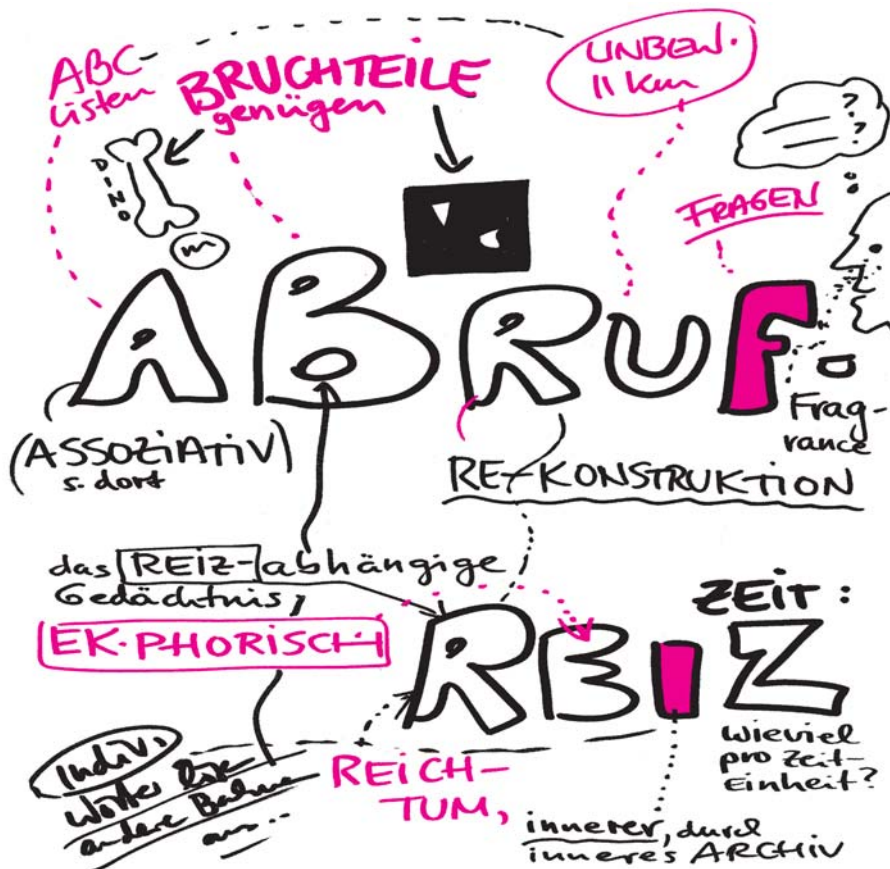 ABC-
Listen
BRUCHTEILE
genügen
UNBEW.
11 km
DINO
m
? ? ?
FRAGEN
ABRUF
Frag-
rance
(ASSOZiATiV)
s. dort
RE-KONSTRUKTION
das REiZ-abhängige
Gedächtnis,
EK-PHORISCH
ZEiT:
REIZ
wieviel
pro Zeit-
Einheit?
Indiv.
Wörter
andere Bahnen
aus...
REiCH-
TUM,
innerer, durch
inneres ARCHiV